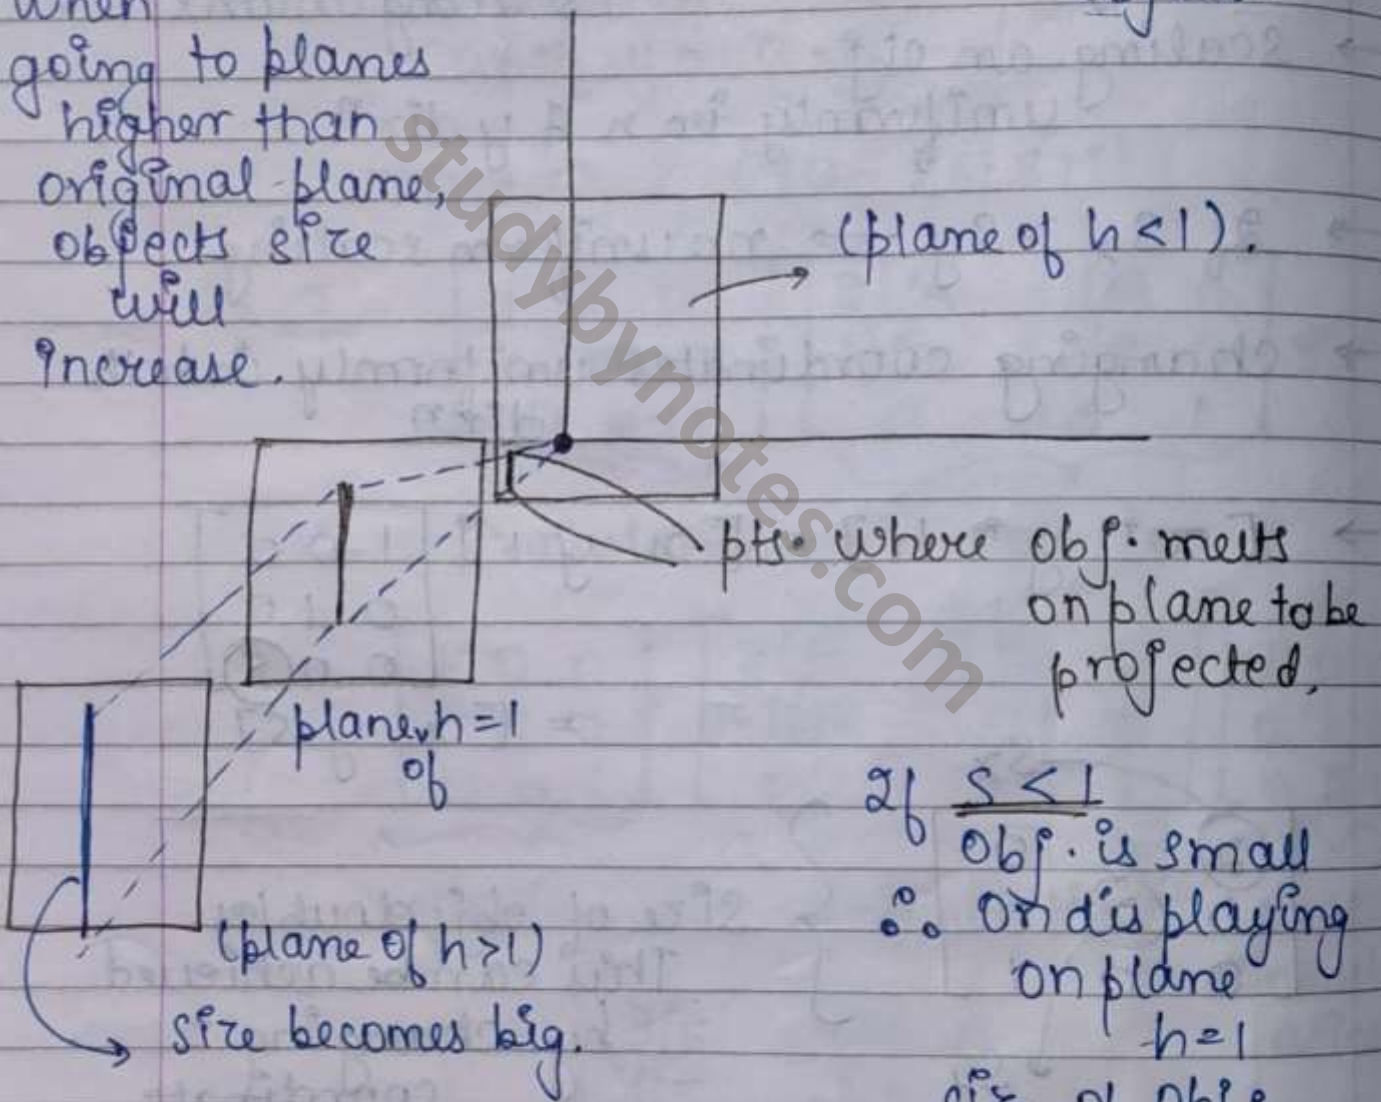 When
going to planes
higher than
original plane,
objects size
will
increase.
(plane of h<1).
pts. where obj. meets
on plane to be
projected.
plane of h=1
(plane of h>1)
size becomes big.
If s<1
Obj. is small
∴ on displaying
on plane
h=1
studybynotes.com